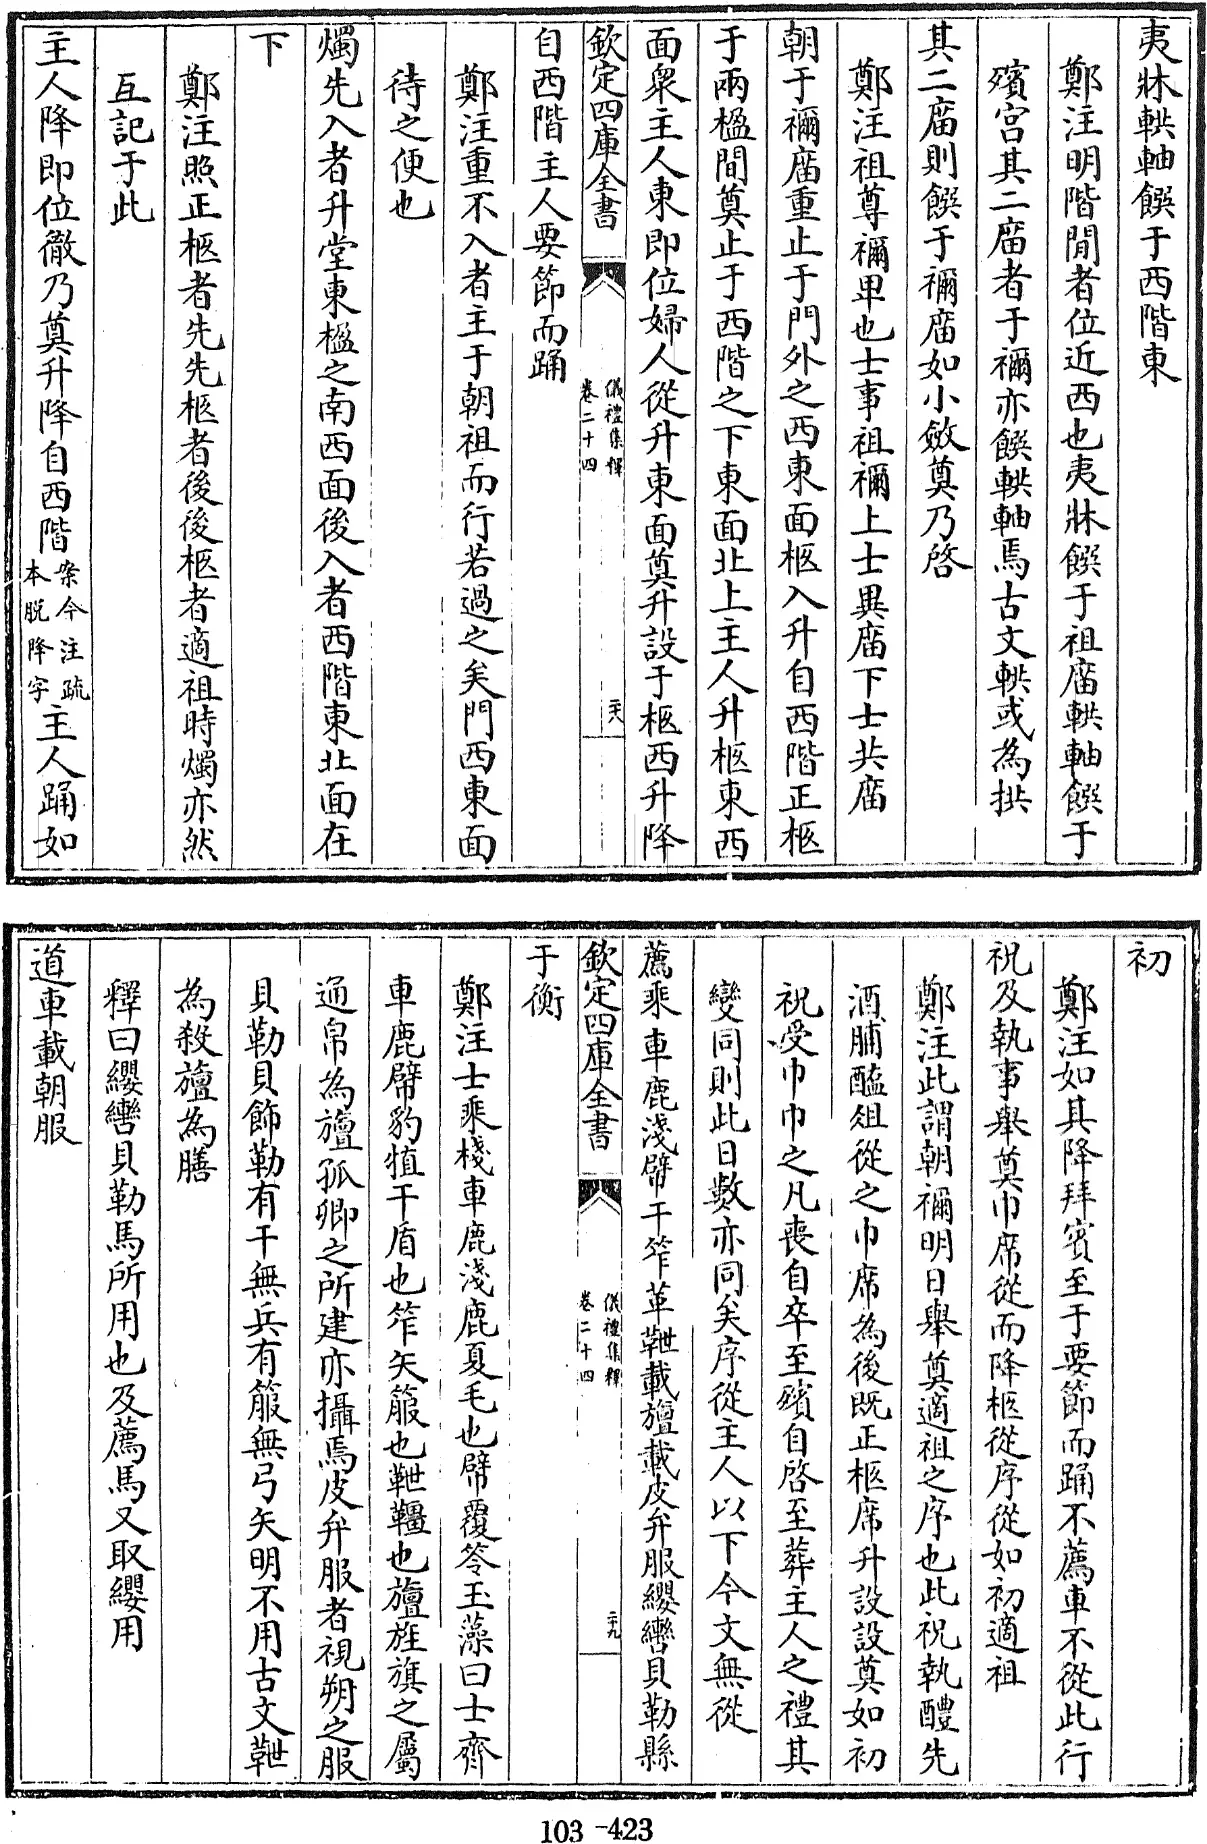 夷牀輁軸饌于西階東
鄭注明階閒者位近西也夷牀饌于祖廟輁軸饌于
殯宮其二廟者于禰亦饌輁軸焉古文輁或為拱
其二廟則饌于禰廟如小斂奠乃啓
鄭注祖尊禰卑也士事祖禰上士異廟下士共廟
朝于禰廟重止于門外之西東面柩入升自西階正柩
于兩楹間奠止于西階之下東面北上主人升柩東西
面衆主人東即位婦人從升東面奠升設于柩西升降
欽定四庫全書
儀禮集釋
卷二十四
二十八
自西階主人要節而踊
鄭注重不入者主于朝祖而行若過之矣門西東面
待之便也
燭先入者升堂東楹之南西面後入者西階東北面在
下
鄭注照正柩者先先柩者後後柩者適祖時燭亦然
互記于此
主人降即位徹乃奠升降自西階案今注疏本脱降字主人踊如
初
鄭注如其降拜賓至于要節而踊不薦車不從此行
祝及執事舉奠巾席從而降柩從序從如初適祖
鄭注此謂朝禰明日舉奠適祖之序也此祝執醴先
酒脯醢俎從之巾席為後既正柩席升設設奠如初
祝受巾巾之凡喪自卒至殯自啓至葬主人之禮其
變同則此日數亦同矣序從主人以下今文無從
薦乘車鹿淺幦干笮革靾載旜載皮弁服纓轡貝勒縣
欽定四庫全書
儀禮集釋
卷二十四
二十九
于衡
鄭注士乘棧車鹿淺鹿夏毛也幦覆笭玉藻曰士齊
車鹿幦豹犆干盾也笮矢箙也靾韁也旜旌旗之屬
通帛為旜孤卿之所建亦攝焉皮弁服者視朔之服
貝勒貝飾勒有干無兵有箙無弓矢明不用古文靾
為殺旜為膳
釋曰纓轡貝勒馬所用也及薦馬又取纓用
道車載朝服
103-423